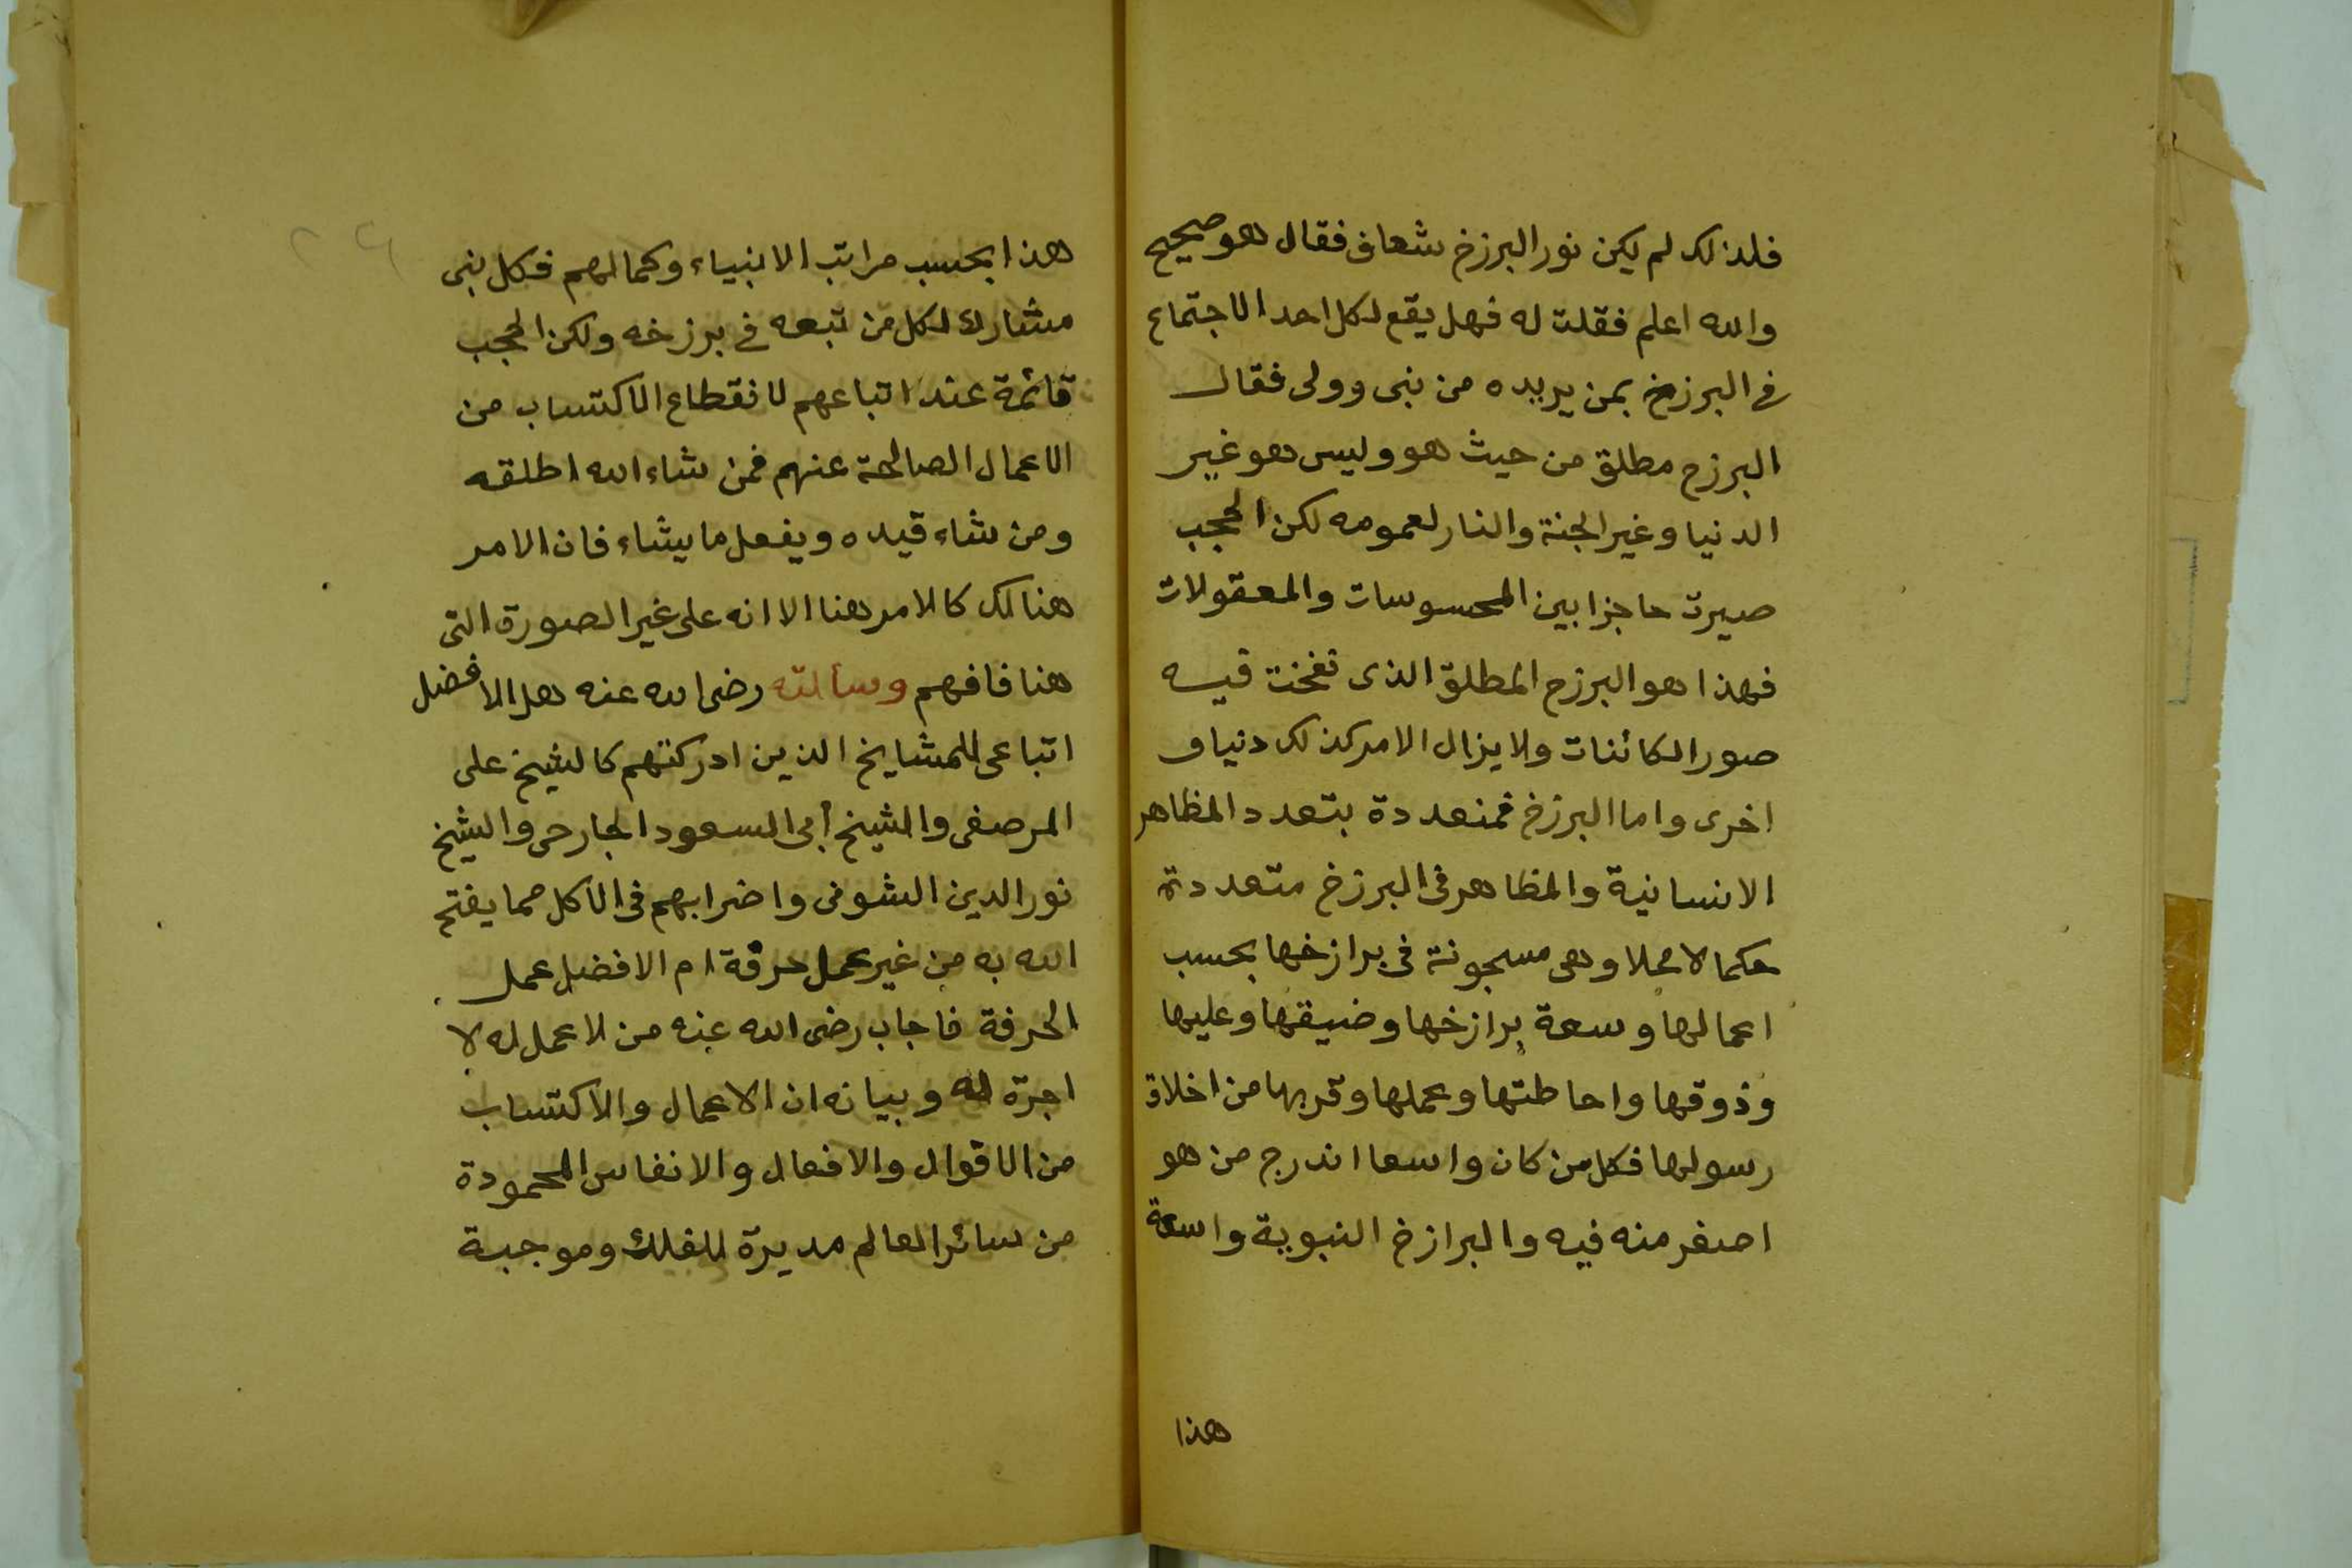 فلذلك لم يكن نور البرزخ شعاف فقال هو صحيح
والله اعلم فقلت له فهل يقع لكل احد الاجتماع
فى البرزخ بمن يريده من نبى وولى فقال
البرزح مطلق من حيث هو وليس هو غير
الدنيا وغير الجنة والنار لعمومه لكن الحجب
صيرت حاجزا بين المحسوسات والمعقولات
فهذا هو البرزح المطلق الذى نفخت فيه
صور الكائنات ولا يزال الامر كذلك دنيا و
اخرى واما البرزخ فمنعددة بتعدد المظاهر
الانسانية والمظاهر فى البرزخ متعددة
حكما لا محلا وهى مسجونة فى برازخها بحسب
اعمالها وسعة برازخها وضيقها وعليها
وذوقها واحاطتها وعملها وقربها من اخلاق
رسولها فكل من كان واسعا اندرج من هو
اصغر منه فيه والبرازخ النبوية واسعة
هذا
هذا بحسب مراتب الانبياء وكمالهم فكل نبى
مشارك لكل من تبعه فى برزخه ولكن الحجب
قائمة عند اتباعهم لانقطاع الاكتساب من
الاعمال الصالحة عنهم فمن شاء الله اطلقه
ومن شاء قيده ويفعل ما يشاء فان الامر
هنالك كالامر هنا الا انه على غير الصورة التى
هنا فافهم وسألته رضى الله عنه هل الافضل
اتباعى للمشايخ الذين ادركتهم كالشيخ على
المرصفى والشيخ أبى السعود الجارحى والشيخ
نور الدين الشونى واضرابهم فى الاكل مما يفتح
الله به من غير عمل حرفة ام الافضل عمل
الحرفة فاجاب رضى الله عنه من لا عمل له لا
اجرة له وبيانه ان الاعمال والاكتساب
من الاقوال والافعال والانفاس المحمودة
من سائر العالم مديرة للفلك وموجبة